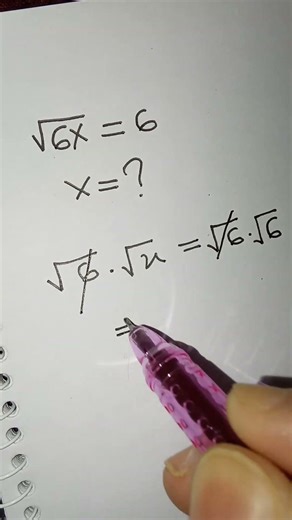 √6x = 6
x = ?
√6 · √x = √6 · √6
=